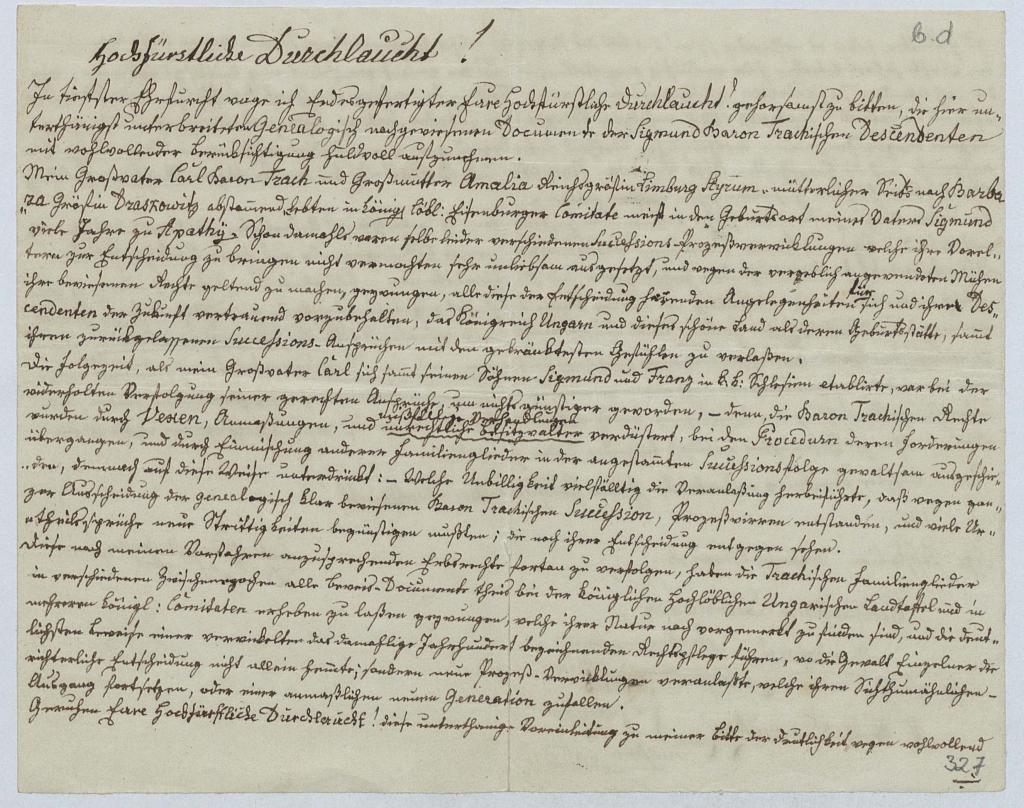 B.d
Hochfürstliche Durchlaucht !
In tiefster Ehrfurcht wage ich Endesgefertigter, Eure Hochfürstliche Durchlaucht! gehorsamst zu bitten, die hier un-
terthänigst unterbreiteten Genealogisch nachgewiesenen Documente der Sigmund Baron Trachischen Descendenten
mit wohlwollender Berücksichtigung huldvoll aufzunehmen.
Mein Großvater Carl Baron Trach und Großmutter Amalia Reichsgräfin Limburg Styrum, mütterlicher Seits nach Barba
„ra Gräfin Draskowitz abstammend, lebten in königl löbl: Eisenburger Comitate meist in den Geburtsort meines Vaters Sigmund
viele Jahre zu Apathy. Schon damahls waren selbe leider verschiedenen Successions-Prozeßverwicklungen welche ihre Vorel-
tern zur Entscheidung zu bringen nicht vermochten sehr unliebsam ausgesetzt, und wegen der vergeblich angewendeten Mühen
ihre bewiesenen Rechte geltend zu machen, gezwungen, alle diese der Entscheidung harrenden Angelegenheiten für sich und ihren Des-
cendenten der Zukunft vertrauend vorzubehalten, das Königreich Ungarn und dieses schöne Land als deren Geburtsstätte, sammt
ihren zurückgelassenen Successions-Ansprüchen mit den gekränktesten Gefühlen zu verlaßen.
Die Folgezeit, als mein Großvater Carl sich sammt seinen Söhnen Sigmund und Franz in k.k. Schlesien etablirte, war bei der
widerholten Verfolgung seiner gerechten Ansprüche, um nichts günstiger geworden, – denn, die Baron Trachischen Rechte
wurden durch Anmaßungen, und unrechtliche Besitzhalter verdüstert, bei den Procedurn deren Forderungen
übergangen, und durch Einmischung anderer Familienglieder in der angestammten Successionsfolge gewaltsam ausgeschie-
„den, demnach auf diese Weise unterdrückt: – Welche Unbilligkeit vielfälltig die Veranlaßung herbeiführte, daß wegen gan-
zer Ausscheidung der genealogisch klar bewiesenen Baron Trachischen Succession, Prozeßwirren entstanden, und viele Ur-
„theilssprüche neue Streittigkeiten begünstigen mußten; die noch ihrer Entscheidung entgegen sehen.
Diese nach meinen Vorfahren anzusprechenden Erbsrechte fortan zu verfolgen, haben die Trachischen Familienglieder
in verschiedenen Zwischenepochen alle Beweis-Documente theils bei der königlichen Hochlöblichen Ungarischen Landtaffel und in
mehreren königl: Comitaten erheben zu laßen gezwungen, welche ihrer Natur nach vorgemerkt zu finden sind, und die deut-
lichsten Beweise einer verwickelten das damahlige Jahrhundert bezeichnenden Rechtspflege führen, wo die Gewalt Einzelner die
richterliche Entscheidung nicht allein hemmte; sondern neue Prozeß-Verwicklungen veranlaßte, welche ihren
Ausgang fortsetzen, oder einer anmaßlichen neuen Generation zufallen.
Geruhen Eure Hochfürstliche Durchlaucht! diese unterthänige Voreinleitung zu meiner Bitte der Deutlichkeit wegen wohlwollend
327